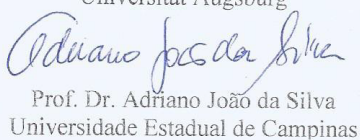 Universität Augsburg
Adriano João da Silva
Prof. Dr. Adriano João da Silva
Universidade Estadual de Campinas